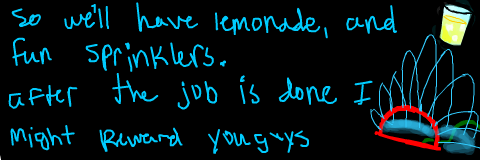 So we'll have lemonade, and
fun sprinklers.
after the job is done I
Might Reward you guys